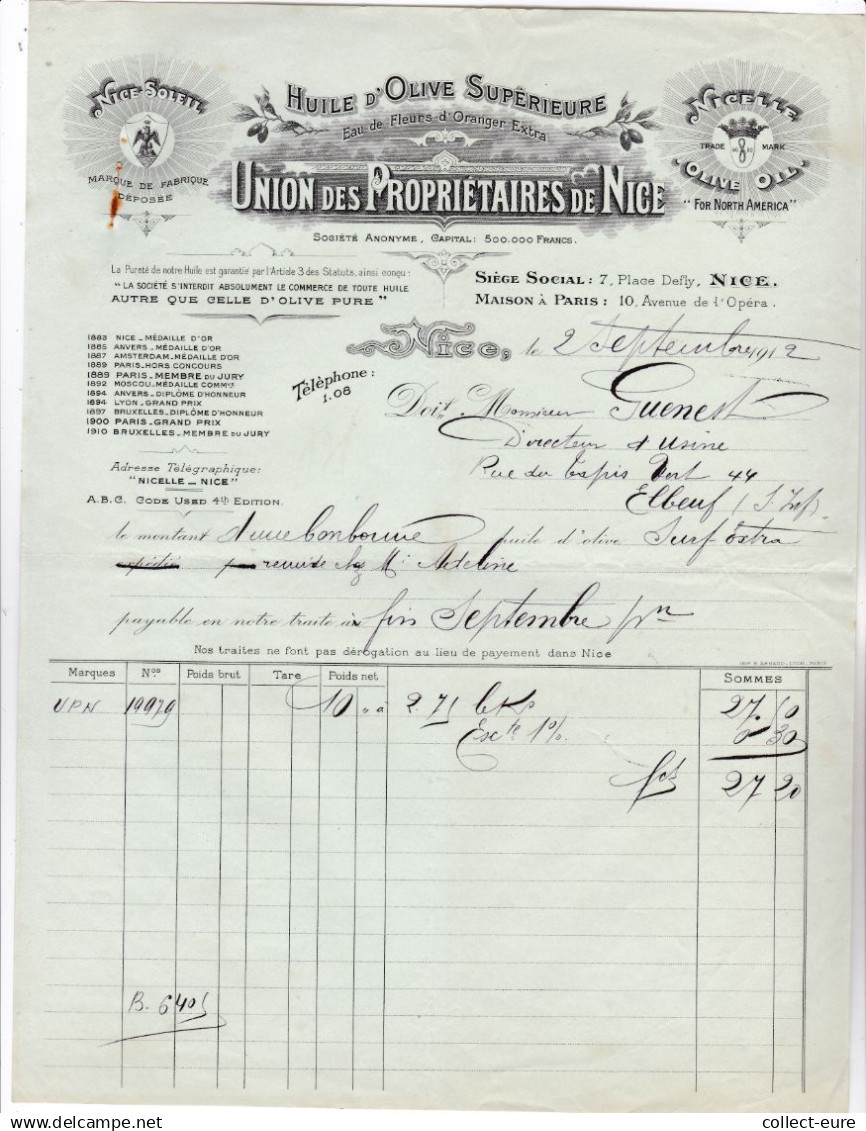 NICE-SOLEIL
MARQUE DE FABRIQUE
DÉPOSÉE
HUILE D'OLIVE SUPÉRIEURE
Eau de Fleurs d'Oranger Extra
UNION DES PROPRIÉTAIRES DE NICE
SOCIÉTÉ ANONYME, CAPITAL: 500.000 FRANCS.
NICELLE
TRADE MARK
OLIVE OIL
"FOR NORTH AMERICA"
La Pureté de notre Huile est garantie par l'Article 3 des Statuts, ainsi conçu:
"LA SOCIÉTÉ S'INTERDIT ABSOLUMENT LE COMMERCE DE TOUTE HUILE
AUTRE QUE CELLE D'OLIVE PURE"
SIÈGE SOCIAL: 7, Place Defly, NICE.
MAISON À PARIS: 10, Avenue de l'Opéra.
1883 NICE - MÉDAILLE D'OR
1885 ANVERS - MÉDAILLE D'OR
1887 AMSTERDAM - MÉDAILLE D'OR
1889 PARIS - HORS CONCOURS
1889 PARIS - MEMBRE DU JURY
1892 MOSCOU - MÉDAILLE COMMVE
1894 ANVERS - DIPLÔME D'HONNEUR
1894 LYON - GRAND PRIX
1897 BRUXELLES - DIPLÔME D'HONNEUR
1900 PARIS - GRAND PRIX
1910 BRUXELLES - MEMBRE DU JURY
Adresse Télégraphique:
"NICELLE - NICE"
A.B.C. CODE USED 4th EDITION.
Nice, le 2 Septembre 1912
Téléphone:
1.08
Doit Monsieur Guenest
Directeur d'usine
Rue du Tapis Vert 44
Elbeuf (S. Inf)
le montant d'une bonbonne huile d'olive Surf extra
expédié remise chez Mr Adeline
payable en notre traite à fin Septembre
Nos traites ne font pas dérogation au lieu de payement dans Nice
IMP. B. ARNAUD, LYON, PARIS
Marques Nos Poids brut Tare Poids net SOMMES
UPN 19979 10 " à 2.75 le K° 27.50
Escte 1% 0 30
fcs 27 20
B. 6405
collect-eure